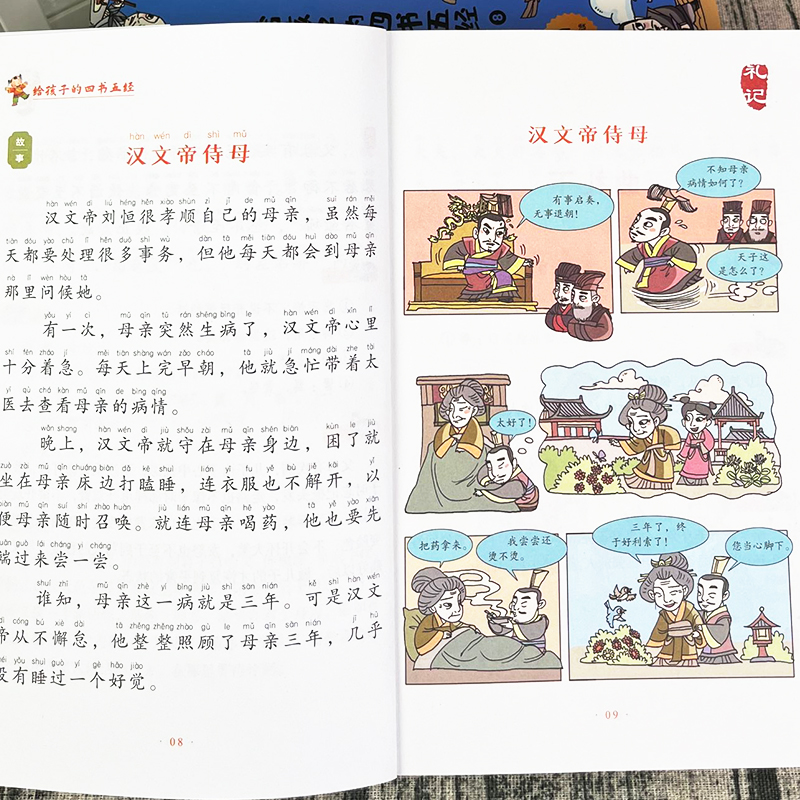 四书五经 8
给孩子的四书五经
故事
hàn wén dì shì mǔ
汉文帝侍母
hàn wén dì liú héng hěn xiào shùn zì jǐ de mǔ qīn suī rán měi
汉文帝刘恒很孝顺自己的母亲，虽然每
tiān dōu yào chǔ lǐ hěn duō shì wù dàn tā měi tiān dōu huì dào mǔ qīn
天都要处理很多事务，但他每天都会到母亲
nà lǐ wèn hòu tā
那里问候她。
yǒu yí cì mǔ qīn tū rán shēng bìng le hàn wén dì xīn lǐ
有一次，母亲突然生病了，汉文帝心里
shí fēn zháo jí měi tiān shàng wán zǎo cháo tā jiù jí máng dài zhe tài
十分着急。每天上完早朝，他就急忙带着太
yī qù chá kàn mǔ qīn de bìng qíng
医去查看母亲的病情。
wǎn shang hàn wén dì jiù shǒu zài mǔ qīn shēn biān kùn le jiù
晚上，汉文帝就守在母亲身边，困了就
zuò zài mǔ qīn chuáng biān dǎ kē shuì lián yī fu yě bù jiě kāi yǐ
坐在母亲床边打瞌睡，连衣服也不解开，以
biàn mǔ qīn suí shí zhào huàn jiù lián mǔ qīn hē yào tā yě yào xiān
便母亲随时召唤。就连母亲喝药，他也要先
duān guò lái cháng yi cháng
端过来尝一尝。
shuí zhī mǔ qīn zhè yí bìng jiù shì sān nián kě shì hàn wén
谁知，母亲这一病就是三年。可是汉文
dì cóng bú xiè dài tā zhěng zhěng zhào gù le mǔ qīn sān nián jī hū
帝从不懈怠，他整整照顾了母亲三年，几乎
méi yǒu shuì guò yí gè hǎo jiào
没有睡过一个好觉。
08
礼记
汉文帝侍母
有事启奏，
无事退朝！
不知母亲
病情如何了？
天子这
是怎么了？
太好了！
把药拿来。
我尝尝还
烫不烫。
三年了，终
于好利索了！
您当心脚下。
09